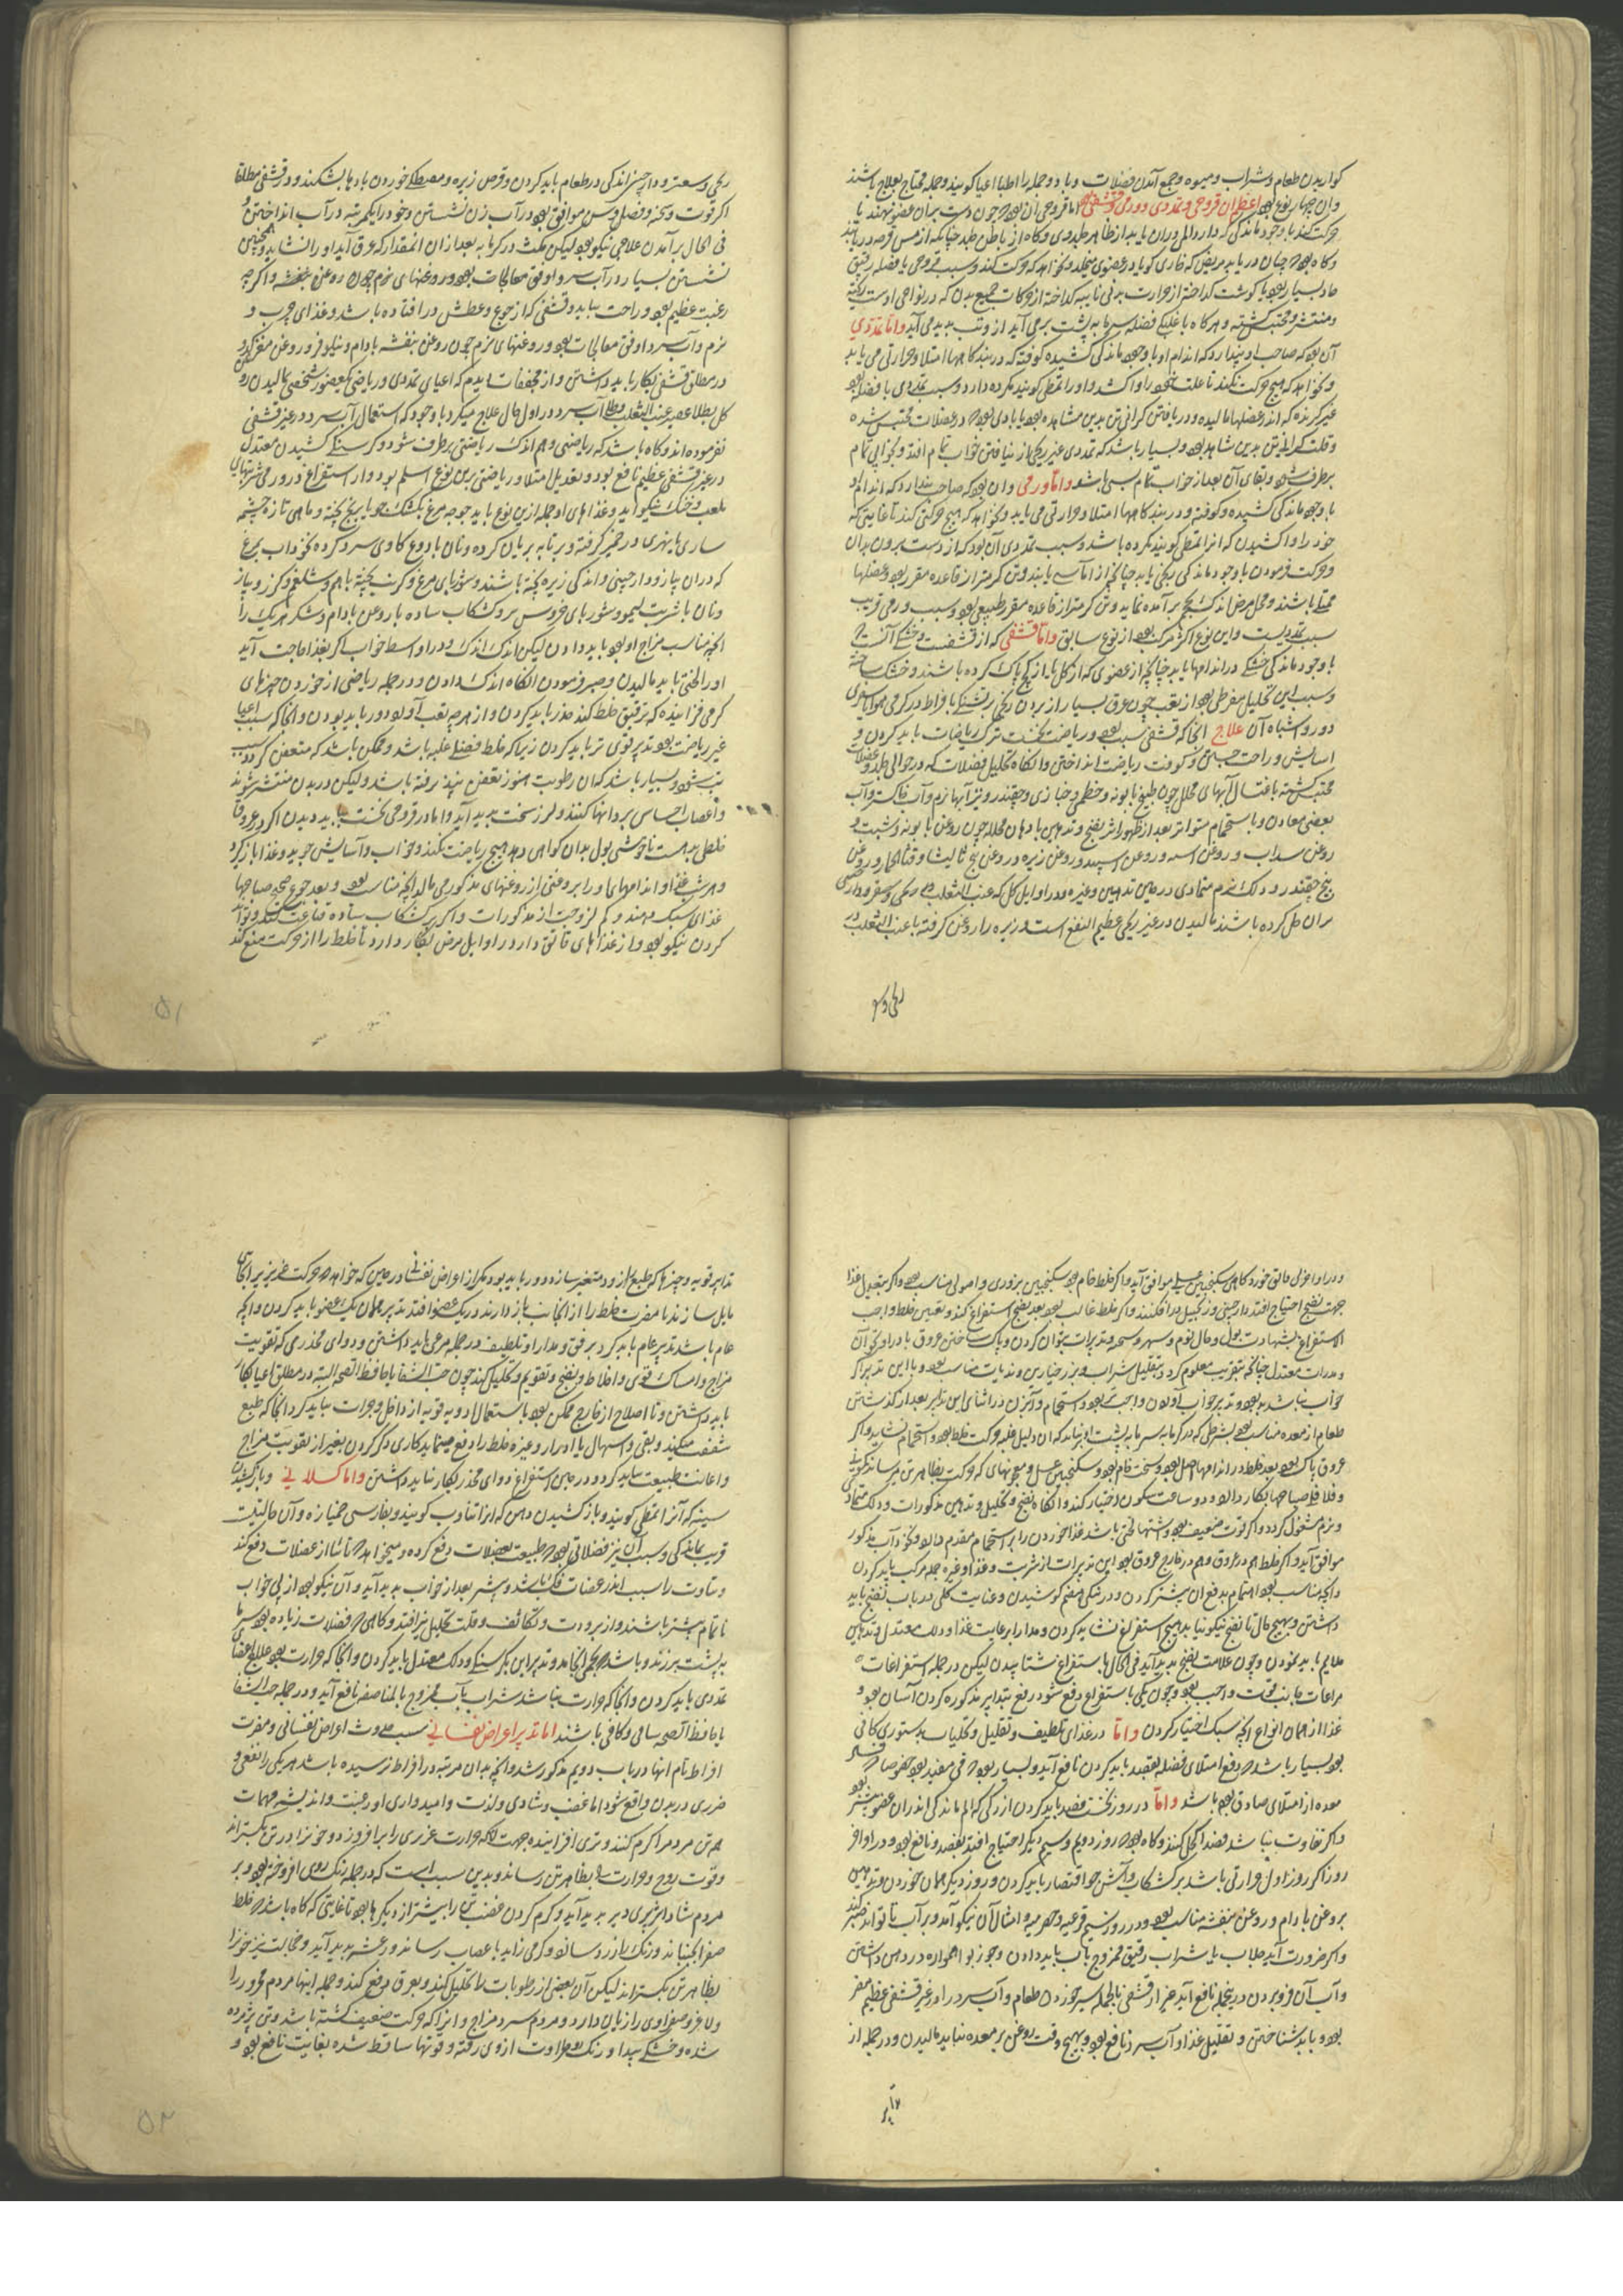 کواریدن طعام و شراب و میوه و جمع آمدن فضلات و باد و جمله را اطبا اعیا کویند و جمله محتاج بعلاج باشند
و ان چهار نوع بود اعظم ان قروحی و تمددی و ورمی و قشفی اما قروحی آن بود که چون دست بران عضو نهند یا
حرکت کند با وجود ماندکی که دارد المی دران یابد از ظاهر جلد وی و کاه از باطن جلد چنانکه از مس قرحه دریابند
و کاه بود که چنان دریابد مریض که خاری کویا در عضوی میخلد و نخواهد که حرکت کند و سبب قروحی یا فضله رقیق
حاد بسیار بود یا کوشت کداخته از حرارت برنی تا پیه کداخته از حرکات جمیع بدن که در نواحی اوست ریخته
و منتشر و محتبس کشته و هرکاه با غلبه فضله سرما به پشت برمی آید از و تب پدید می آید و اما تمددی
آن بود که صاحب او پندارد که اندام او با وجود ماندکی کشیده کوفته که در بندکاهها امتلا و حرارتی می یابد
و نخواهد که هیچ حرکت نکند تا علت خود را وا کشد و او را تمطی کویند مکروه دارد و سبب تمددی یا فضله بود
غیر کزنده که اندر عضلها مالیده و در یافتن کرانی تن بدین مشاهد بود یا بادی بود که در عضلات محتبس شده
و قلت کرانی تن بدین شاهد بود و بسیار باشد که تمددی غیر ریحی از نیافتن خواب تمام افتد و بخوابی تمام
برطرف شود و بقای آن بعد از خواب تمام سببی باشد و اما ورمی و ان بود که صاحب پندارد که اندام او
با وجود ماندکی کشیده و کوفته و در بندکاهها امتلا و حرارتی می یابد و نخواهد که هیچ حرکتی کند تا غایتی که
خود را وا کشیدن که انرا تمطی کویند مکروه باشد و سبب تمددی آن بود که از دست برون بدان
و حرکت فرمودن با وجود ماندکی رنجی یابد چنانچه از آماس یابند و تن کرمتر از قاعده مقرر بود و عضلها
ممتلی باشند و محل مرض اندک رنجی برآمده نماید و تن کرمتر از قاعده مقرر طبیعی بود و سبب ورمی قریب
سبب تمددیست و این نوع اکثر مرکب بود از نوع سابق و اما قشفی که از قشفت و خشکی آنست که
با وجود ماندکی خشکی در اندامها یابد چنانچه از عضوی که از کل یا از کچ پاک کرده باشند و خشک ساخته
و سبب این تحلیل مفرطی بود از تعب چون عرق بسیار از بردن رنجی و تشنکی بافراط در کرمی هوا یا سفری
دور و اشباه آن علاج انجا که قشفی سبب بود و ریاضت نخست ترک ریاضات باید کردن و
اسایش و راحت جستن و کوفت ریاضت انداختن و انکاه تحلیل فضلات که در حوالی جلد و عضلات
محتبس کشته باغتسال آبهای محلل چون طبیخ بابونه و خطمی و خبازی و چقندر و نیز آبها نرم و آب خاکستر و آب
بعضی معادن و باستحمام متواتر بعد از ظهور اثر نضج و تدهین بادهان محلله چون روغن بابونه و شبت و
روغن سداب و روغن اسه و روغن اسپید و روغن زیره و روغن بیخ تالیشا و قثاء الحمار و روغن
بیخ چقندر و دلک نرم متمادی در حین تدهین و غیره و در اوایل کل که عنب الثعلب
بران حل کرده باشند مالیدن در غیر ریحی عظیم النفع است و زیره را روغن کرفته با عنب الثعلب
ریحی و
ریحی و سعتر و دارچین اندکی در طعام باید کردن و قرص زیره و مصطکی خوردن بادها بشکند و در قشفی مطلقا
اکر قوت و سحنه و فصل و سن موافق بود در آب زن نشستن و خود را یکمرتبه در آب انداختن و
فی الحال برآمدن علاجی نیکو بود لیکن مکث در کرمابه بعد از ان انمقدار که عرق آید او را نشاید و همچنین
نشستن بسیار در آب سرد و اوفق معالجات بود و روغنهای نرم چون روغن بنفشه و اکر چه
رغبت عظیم بود و راحت یابد و قشفی که از جوع و عطش در افتاده باشد و غذای چرب و
نرم و آب سرد اوفق معالجات بود و روغنهای نرم چون روغن بنفشه بادام و نیلوفر و روغن مغز کدو
در مطلق قشفی بکار باید داشتن و از مجففات دیدم که اعیای تمددی و ریاضی بعضو شخصی بمالیدن
کل بطلا عصیر عنب الثعلب و طلا آب سرد در اول حال علاج میکرد با وجود که استعمال آب سرد در غیر قشفی
نفرموده اند و کاه باشد که ریاضی و هم اندک ریاضتی برطرف شود و کرسنکی کشیدن معتدل
در غیر قشفی عظیم نافع بود و تعدیل امتلا و ریاضتی برین نوع اسلم بود و از استغراغ در ورمی شربتهای
بلعب و خنک نیکو آید و غذاهای او جمله ازین نوع باید جوجه مرغ بکشک جو یا برنج پخته و ماهی تازه چشمه
ساری یا نهری در خمیر کرفته و بر تابه بریان کرده و نان با دوغ کاوی سرد کرده نخوداب بمرغ
که دران پیاز و دارچینی و اندکی زیره پخته باشند و شوربای مرغ و کرنب پخته با هم و شلغم و کزر و پیاز
و نان با شربت لیمو و شوربای خروس بر و کشکاب ساده با روغن بادام و شکر هر یک را
انچه مناسب مزاج او بود باید دادن لیکن اندک اندک و در اواسط خواب اکر بغذا حاجت آید
او را لختی باید مالیدن و صبر فرمودن انکاه اندک دادن و در جمله ریاضی از خوردن چیزهای
کرمی فزاینده که ترقیق خلط کند حذر باید کردن و از هرچه تعب آو بود دور باید بودن و انجا که سبب اعیا
غیر ریاضت بود تدبیر قوی تر باید کردن زیرا که خلط فضلی غلبه باشد و ممکن باشد که متعفن کردد و سبب
تب شود و بسیار باشد که ان رطوبت هنوز تعفن نپذیرفته باشد و لیکن در بدن منتشر شوند
و اعصاب احساس بر دانها کنند و لرز سخت پدید آید و اما در قروحی نخست باید دیدن اکر در عروق
خلطی بد هست ناخوشی بول بدان کواهی دهد هیچ ریاضت نکند و خواب و آسایش جوید و غذا باز کیرد
و هر شب غذا و اندامهای او را بروغنی از روغنهای مذکور می مالد انچه مناسب بود و بعد جوع صحیح صباحها
غذای سبک دهند و کم لزوجت از مذکورات و اکر بر کشکاب ساده قناعت کند و تواند
کردن نیکو بود و از غذاهای قاتق دار در اوایل مرض بکار دارد تا خلط را از حرکت منع کند
۵۱
و در اواخر ان قاتق خورد کاهی سکنجبین عسلی موافق آید و اکر خلط خام بود سکنجبین بزوری و اصولی مناسب بود و اکر بتبدیل غذا
جهت نضج احتیاج افتد دارچینی و زنجبیل در افکنند و اکر خلط غالب بود بعد نضج استفراغ کند و تعیین خلط واجب
الاستفراغ بشهادت بول و حال نوم و سهر و سحنه و تدبیرات بتوان کردن و پاک ساختن عروق بادرار و تی آن
و مدرات معتدل چنانچه بتقریب معلوم کردد بتقلیل شراب و بزر خیارین و ندیات مناسب بود و با این تدبیر اکر
خواب نباشد بد بود و تدبیر خواب آوردن واجب تر بود و استحمام و آبزن در اثنای این تدابیر بعد از کذشتن
طعام از معده مناسب بود بشرطی که در کرمابه سرما به پشت او نیاید که ان دلیل غلبه حرکت خلط بود و استحمام نشاید و اکر
عروق پاک بود و بعد خلط در اندامها اصل بود و سخت خام بود و سکنجبین عسلی و معجونهای که حرکت بظاهر تن میرساند کمونی
و فلافلی صباحها بکار دارد و دو ساعت سکون اختیار کند و انکاه نضج و تحلیل و تدهین مذکورات و دلک متمادی
و نرم مشغول کردد و اکر قوت ضعیف بود و اشتها لختی باشد غذا خوردن را بر استحمام مقدم دارد و نخوداب مذکور
موافق آید و اکر خلط هم در عروق و هم در خارج عروق بود این تدبیرات از شربت و غذا و غیره جمله مرکب باید کردن
و انچه مناسب بود اهتمام بدفع ان بیشتر کردن و در نیکی هضم کوشیدن و عنایت کلی در باب نضج باید
داشتن و بهیچ حال تا نضج نیکو نیابد هیچ استفراغ نشاید کردن و مدار بر عایت غذا و دلک معتدل و تدهین
ملایم باید نمودن و چون علامت نضج پدید آید فی الحال باستفراغ شتابیدن لیکن در جمله استفراغات
مراعات جانب قوت واجب بود و چون یکی باستفراغ دفع شود رفع بتدابیر مذکوره کردن آسان بود و
غذا از همان انواع انچه سبک اختیار کردن و اما در غذای تلطیف و تقلیل و تحلیل بدستوری کافی
بود بسیار باشد که دفع امتلای فضله بفصد باید کردن نافع آید و بسیار بود که قی مفید بود خصوصا
معده از امتلای صادق بود باشد و اما در روز نخست فصد باید کردن از رکی که الم ماندکی اندران عضو بیشتر بود
و اکر تفاوت نباشد فصد اکحل کنند و کاه بود که روز دویم و سیم دیکر احتیاج افتد بفصد و نافع بود و در اواخر
روز اکر روز اول حرارتی باشد بر کشکاب و آش جو اقتصار باید کردن و روز دیکر همان خوردن و تدهین
بروغن بادام و روغن بنفشه مناسب بود و در روز سیم قرعیه و حصرمیه و امثال آن نیکو آمد و بر آب تا تواند صبر کند
و اکر ضرورت آید جلاب یا شراب رقیق ممزوج بآب باید دادن و جوز بوا همواره در دهن داشتن
و آب آن فرو بردن درینجمله نافع آید غیر از قشفی بالجمله سیر خوردن طعام و آب سرد در او غیر قشفی عظیم مضر
بود و باید شناختن و تقلیل غذا و آب سرد نافع بود و بهیچ وقت روغن بر معده نباید مالیدن و در جمله از
تدابیر
تدابیر قویه و چیزها که طبع از و متغیر سازد دور باید بود مکر از اعراض نفسانی در حین که خواهد که حرکت غریزیرا بجانبی
مایل سازند یا مضرت خلط را از انجانب باز دارند در یک عضو افتد تدبیر همان یک عضو باید کردن و انچه
عام باشد تدبیر عام باید کرد برفق و مدارا و تلطیف و در جمله مرعی باید داشتن و دوای مخدر می که تقویت
مزاج و امساک قوی و اخلاط و نضج و تقویم و تحلیل کند چون حب الشفا یا حافظ الصحه البته در مطلق اعیا بکار
باید داشتن و تا اصلاح از خارج ممکن بود باستعمال ادویه قویه از داخل و جرات نباید کرد انجا که طبع
شفقت میکند و بقی و اسهال یا ادرار و غیره خلط را دفع مینماید کاری دکر کردن بغیر از تقویت مزاج
و اعانت طبیعت نباید کرد و در حین استفراغ دوای مخدر بکار نباید داشتن و اما کسلانی و باز کشیدن
سینه که آنرا تمطی کویند و باز کشیدن دهن که انرا تثاوب کویند و بفارسی خمیازه و آن حالتیست
قریب بماندکی و سبب آن نیز فضلاتی بود که طبیعت بعضلات دفع کرده و میخواهد که تا انرا از عضلات دفع کند
و تثاوب را سبب اندر عضلات فک باشد و بیشتر بعد از خواب پدید آید و آن نیکو بود از بی خواب
ناتمام بیشتر باشد و از برودت و تکاثف و قلت تحلیل نیز افتد و کاهی که فضلات زیاده بود سرما
به پشت برزند و باشد که بحمی انجامد و تدبیر این بکرسنکی و دلک معتدل باید کردن و انجا که حرارت بود علاج اعیا
تمددی باید کردن و انجا که حرارت نباشد شراب بآب ممزوج بالمناصفه نافع آید و در جمله حب الشفا
یا حافظ الصحه شافی و کافی باشند اما تدبیر اعراض نفسانی سبب حدوث اعراض نفسانی و مضرت
افراط تام انها در باب دویم مذکور شد و انچه بدان مرتبه در افراط نرسیده باشد هر یکی را نفعی و
ضرری در بدن واقع شود اما غضب و شادی و لذت و امیدواری او رغبت و اندیشه مهمات
همه تن مردم را کرم کنند و تری افزاینده جهت انکه حرارت غریزی را بر افروزد و خونرا در تن بکستراند
و قوت روح و حرارت را بظاهر تن رساند و بدین سبب است که در جمله رنک روی افروخته بود و بر
مردم شادان پیری دیر پدید آید و کرم کردن غضب تن را بیشتر از دیکرها بود تا غایتی که کاه باشد که خلط
صفرا بجنباند و رنک را زرد سازد و کرمی زاید باعصاب رساند و رعشه پدید آید و خجالت نیز خونرا
بظاهر تن بکستراند لیکن آن بعضی از رطوبات را تحلیل کند و بعرق دفع کند و جمله اینها مردم محرور را
و لاغر و صفراوی را زیان دارد و مردم سرد مزاج و انرا که حرکت ضعیف کشته باشد و تن پژمرده
شده و خشکی پیدا و رنک و طراوت از وی رفته و قوتها ساقط شده بغایت نافع بود و
۵۲